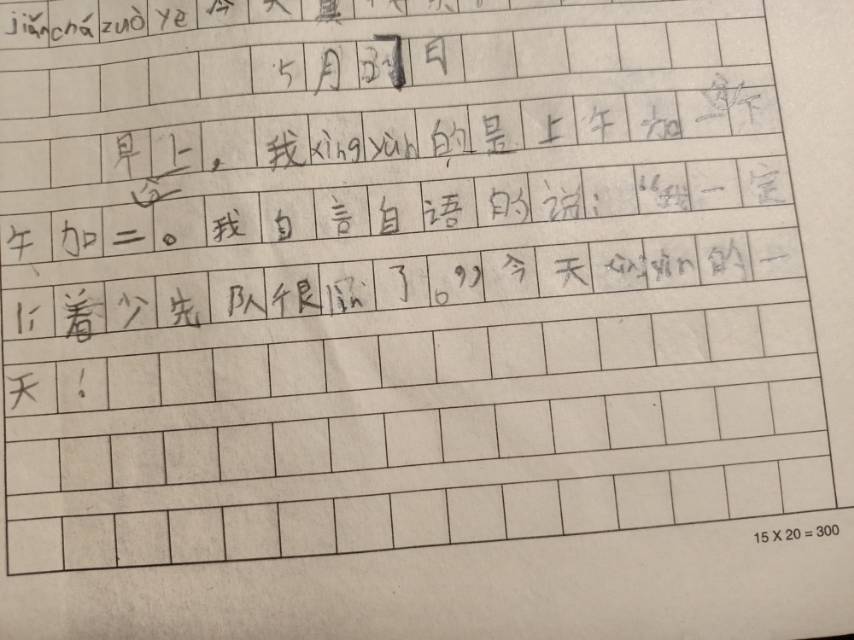 jiǎn chá zuò yè 今天真
5月31日
早上，我xìng yùn的是上午加一下
午加二。我自言自语的说：“我一定
li着少先队很lín了。”今天xìng yùn的一
天！
15 X 20 = 300